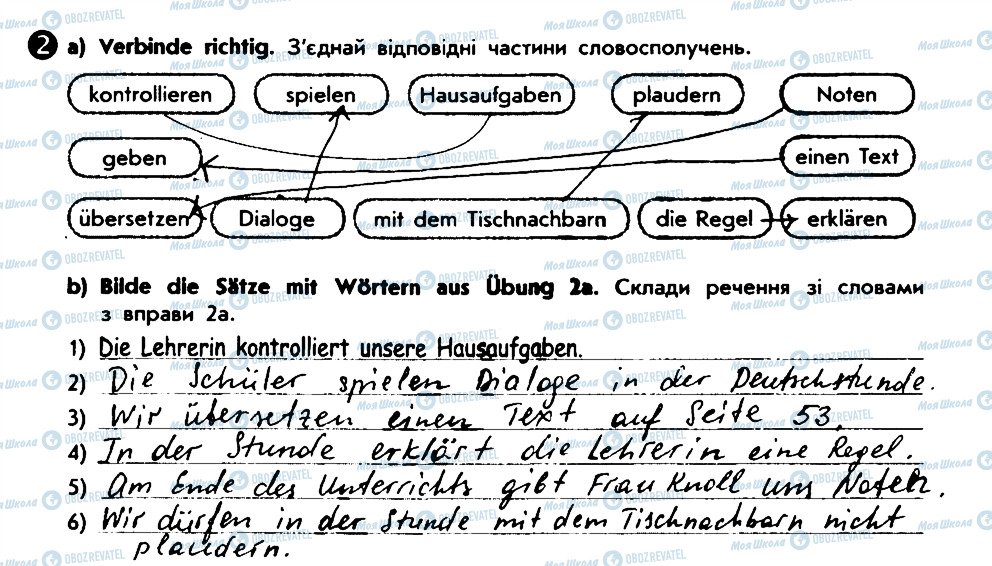 2 a) Verbinde richtig. З'єднай відповідні частини словосполучень.
kontrollieren spielen Hausaufgaben plaudern Noten
geben einen Text
übersetzen Dialoge mit dem Tischnachbarn die Regel erklären
b) Bilde die Sätze mit Wörtern aus Übung 2a. Склади речення зі словами
з вправи 2a.
1) Die Lehrerin kontrolliert unsere Hausaufgaben.
2) Die Schüler spielen Dialoge in der Deutschstunde.
3) Wir übersetzen einen Text auf Seite 53.
4) In der Stunde erklärt die Lehrerin eine Regel.
5) Am Ende des Unterrichts gibt Frau Knoll uns Noten.
6) Wir dürfen in der Stunde mit dem Tischnachbarn nicht
plaudern.
МояШкола OBOZREVATEL